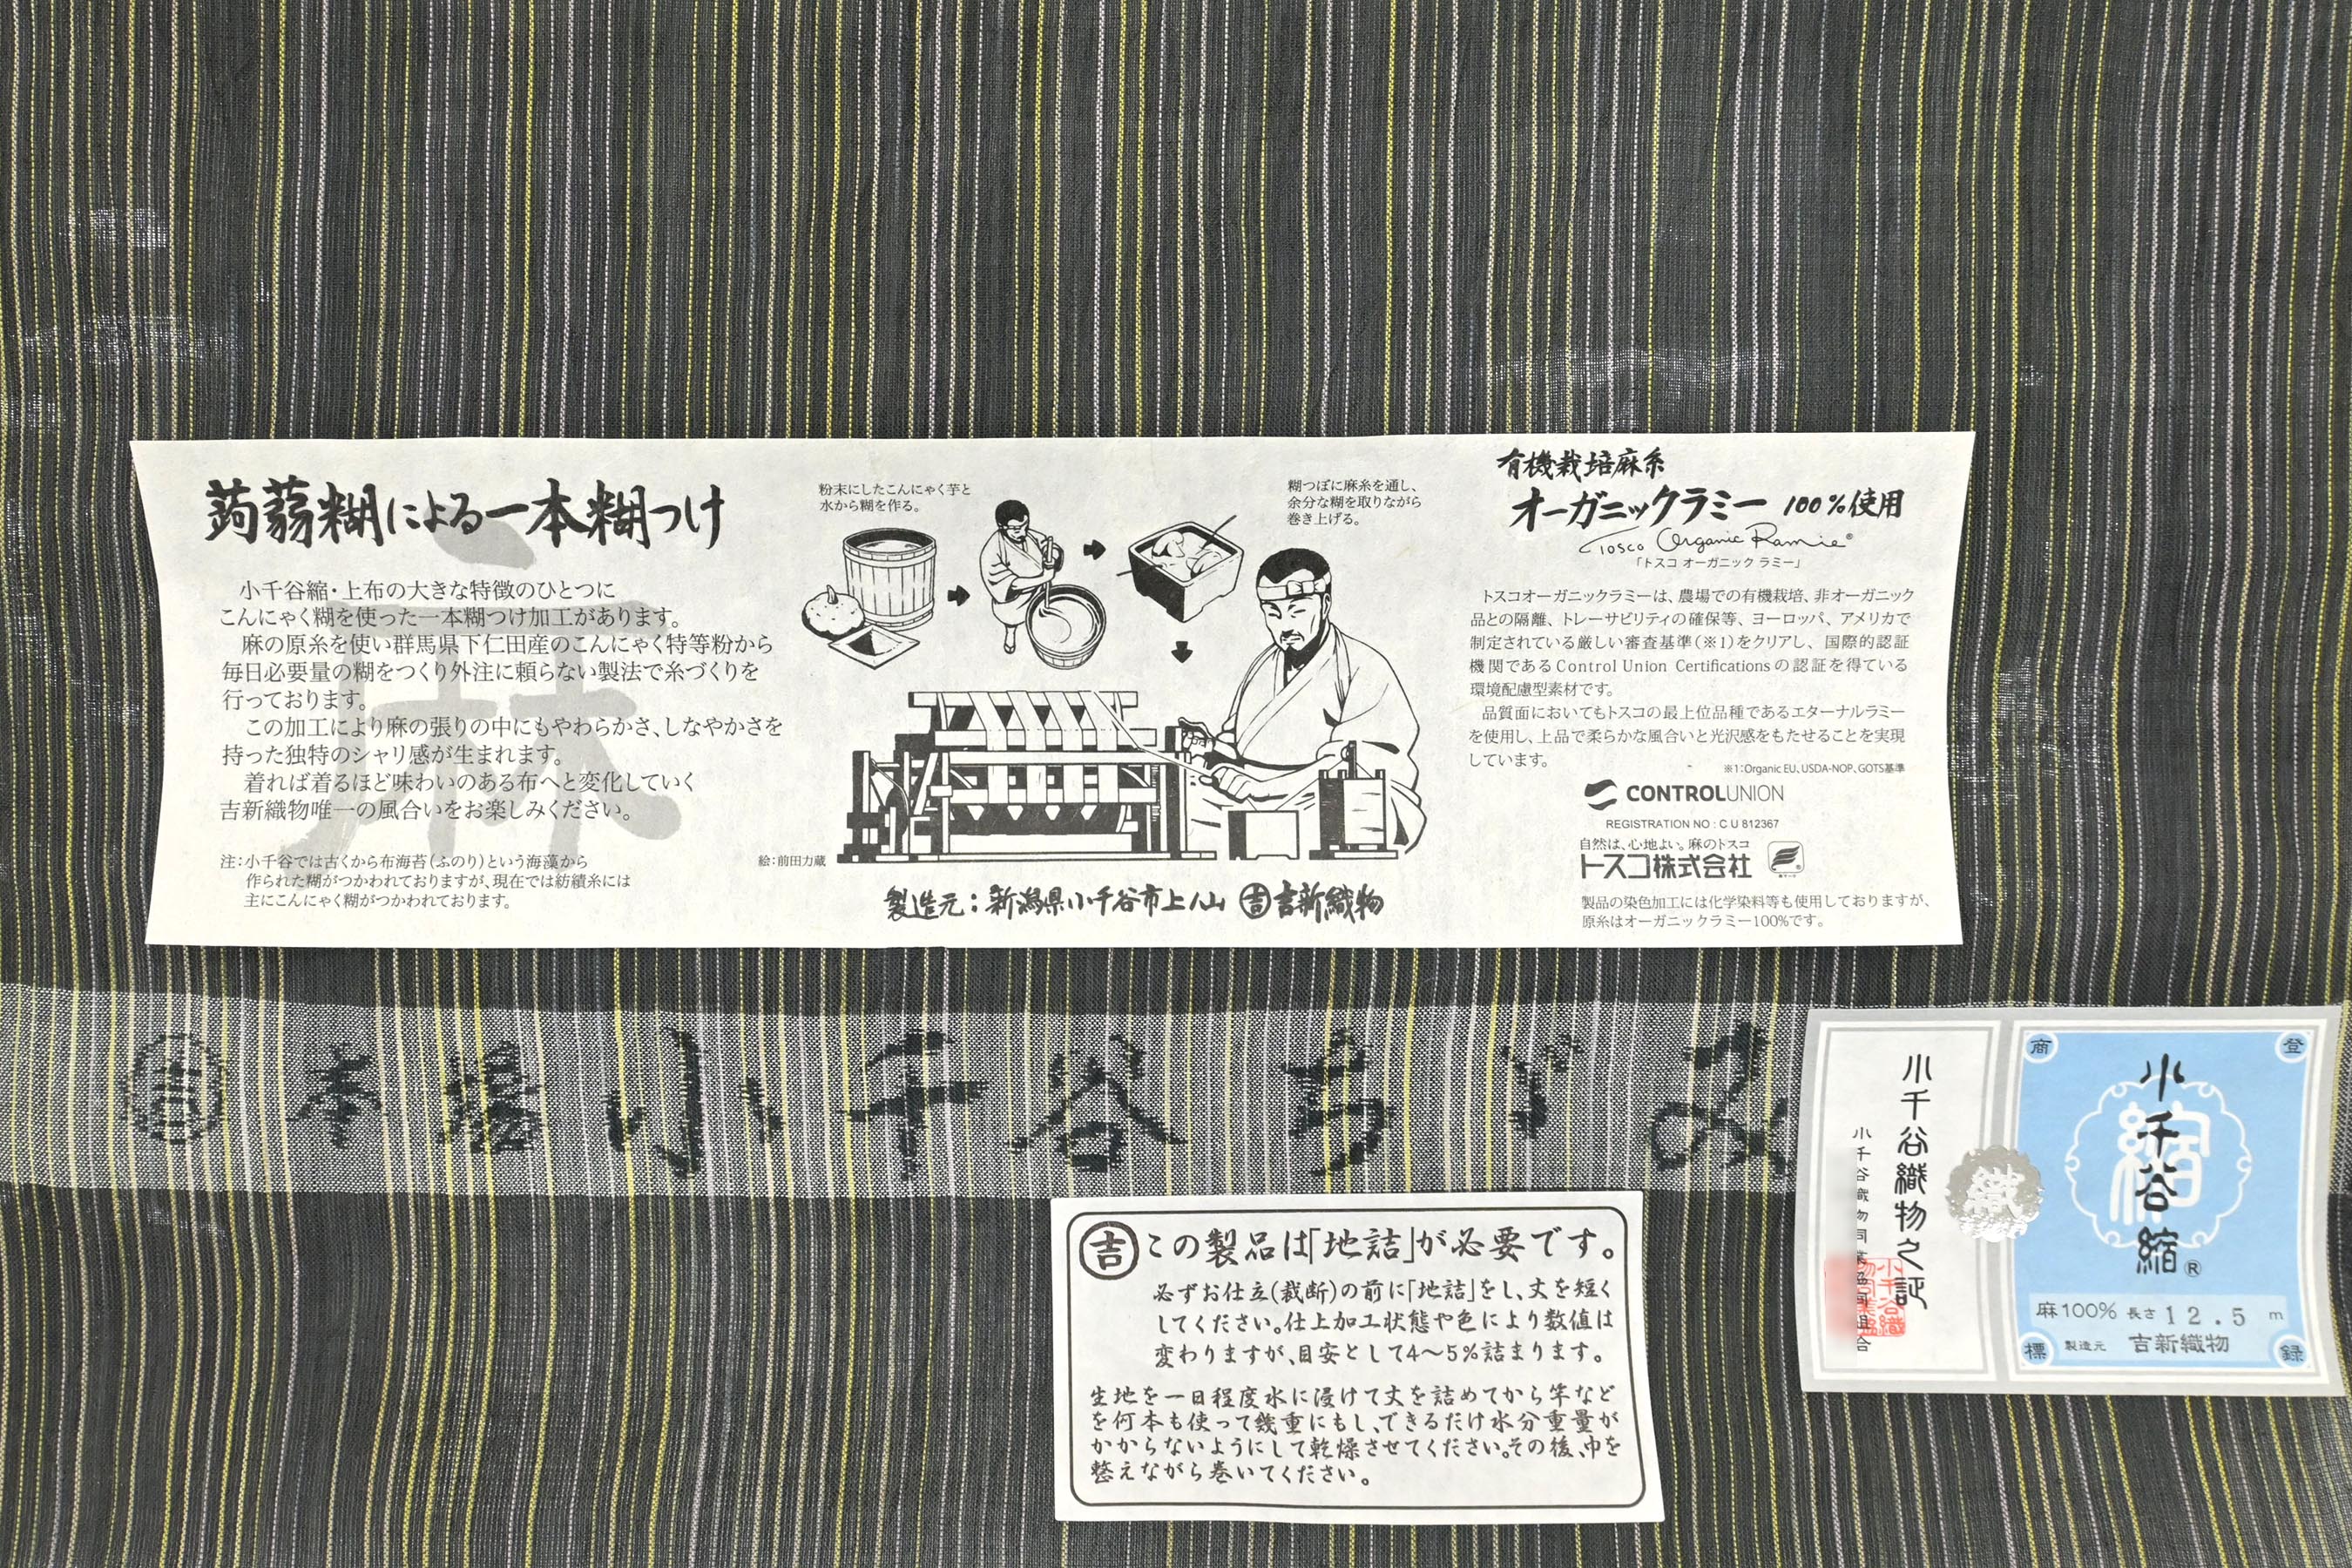 蒟蒻糊による一本糊つけ
小千谷縮・上布の大きな特徴のひとつに
こんにゃく糊を使った一本糊つけ加工があります。
麻の原糸を使い群馬県下仁田産のこんにゃく特等粉から
毎日必要量の糊をつくり外注に頼らない製法で糸づくりを
行っております。
この加工により麻の張りの中にもやわらかさ、しなやかさを
持った独特のシャリ感が生まれます。
着れば着るほど味わいのある布へと変化していく
吉新織物唯一の風合いをお楽しみください。
注:小千谷では古くから布海苔(ふのり)という海藻から
作られた糊がつかわれておりますが、現在では紡績糸には
主にこんにゃく糊がつかわれております。
麻
粉末にしたこんにゃく芋と
水から糊を作る。
糊つぼに麻糸を通し、
余分な糊を取りながら
巻き上げる。
絵:前田力蔵
製造元:新潟県小千谷市上ノ山 吉 吉新織物
有機栽培麻糸
オーガニックラミー 100%使用
Tosco Organic Ramie®
「トスコ オーガニック ラミー」
トスコオーガニックラミーは、農場での有機栽培、非オーガニック
品との隔離、トレーサビリティの確保等、ヨーロッパ、アメリカで
制定されている厳しい審査基準(※1)をクリアし、国際的認証
機関であるControl Union Certificationsの認証を得ている
環境配慮型素材です。
品質面においてもトスコの最上位品種であるエターナルラミー
を使用し、上品で柔らかな風合いと光沢感をもたせることを実現
しています。
※1:Organic EU、USDA-NOP、GOTS基準
CONTROLUNION
REGISTRATION NO : C U 812367
自然は、心地よい。麻のトスコ
トスコ株式会社
製品の染色加工には化学染料等も使用しておりますが、
原糸はオーガニックラミー100%です。
吉 本場小千谷ちゞみ
吉 この製品は「地詰」が必要です。
必ずお仕立(裁断)の前に「地詰」をし、丈を短く
してください。仕上加工状態や色により数値は
変わりますが、目安として4〜5%詰まります。
生地を一日程度水に浸けて丈を詰めてから竿など
を何本も使って幾重にもし、できるだけ水分重量が
かからないようにして乾燥させてください。その後、巾を
整えながら巻いてください。
小千谷織物之証
小千谷織物同業協同組合
織
登録商標
縮
小千谷縮®
麻100% 長さ12.5m
製造元 吉新織物